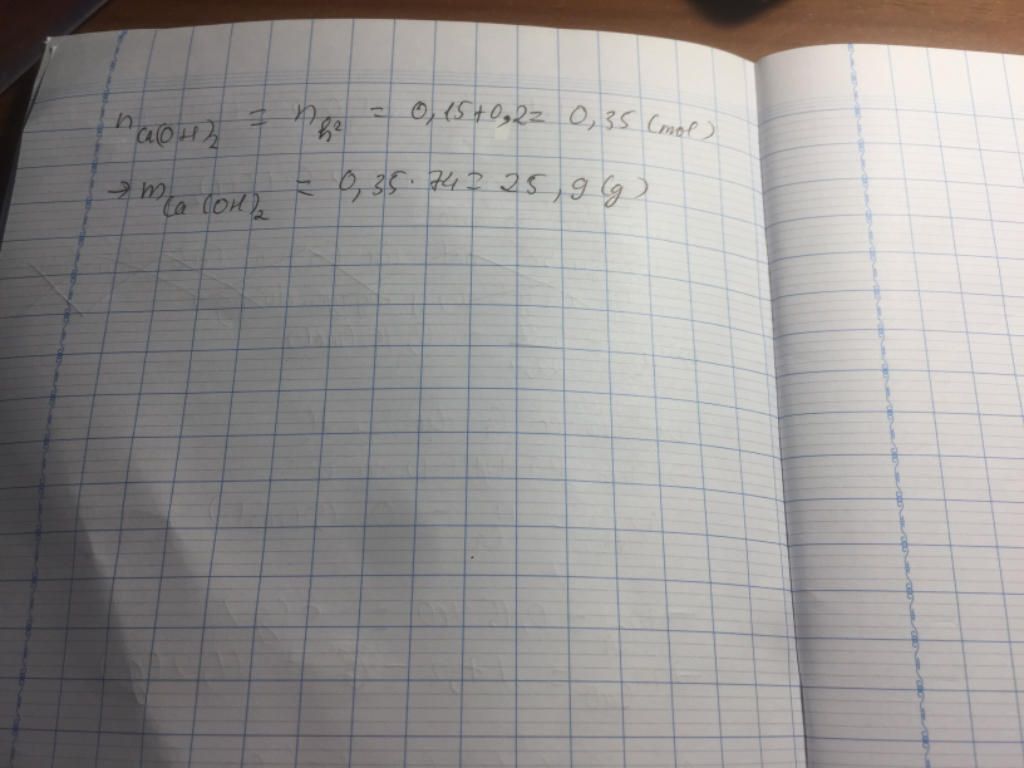 n Ca(OH)₂ = n h² = 0,15+0,2= 0,35 (mol)
→ m Ca(OH)₂ = 0,35·74= 25,9 (g)